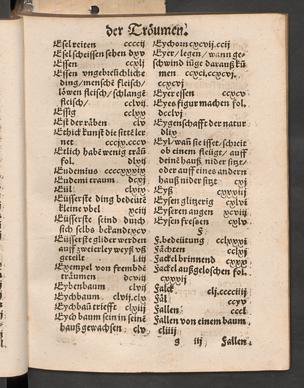 der Tröumen.
Esel reiten ccccij
Esel scheissen sehen dxv
Essen ccxlj
Essen vngebreüchliche
ding/menschẽ fleisch/
löwen fleisch/schlangẽ
fleisch/ cclvij
Essig cclxv
Est der räben clv
Ethick kunst die sittẽ ler
net
Etlich habẽ wenig träü
fol. dlvij
Eudemius
Eudemi traum dcxj
Eül clxj
Eüsserste ding bedeütẽ
kleine übel xcij
Eüsserste seind durch
sich selbs bekandt xcv
Eüsserste glider werden
auff zweierley weyß vß
geteilt
Exempel von frembdẽ
träumen dcxvij
Eybenbaum clvij
Eychbaum clvij.clix
Eychbaũ triefft cxliiij
Eych baum sein in seinẽ
hauß gewachsen clv
Eychorn cxcvij.ccij
Eyer/legen/wann ge-
schwind iüge darauß kũ
men ccxcj.ccxcvj.
ccxcv
Eyer essen ccxcv
Eyes figur machen fol.
dccxlj
Eygenschafft der natur
dliiv
Eyl/wañ sie isset/schreit
ob einem fleügt/auff
deinẽ hauß nider sitzt/
oder auff eines andern
hauß nider sitzt cxj
Eyß cxxviij
Eysen glitzerig cxlvj
Eyseren augen xcviij
Eysen fressen cxlv
F
F. bedeütung cclxxxvj
Fächten ccclxj
Fackel brinnend cxxx
Fackel außgeloschen fol.
cxxxvij
Falck clj.cccciiij
Fäl ccxv
Fallen ccccl
Fallen von einem baum
cliiij
g iij Fallen